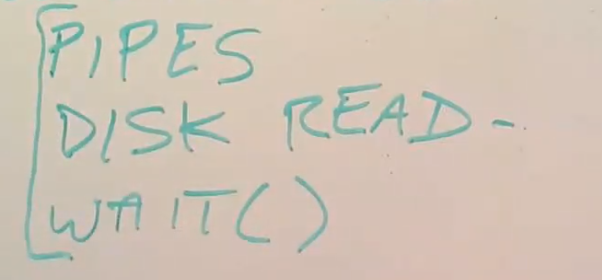 PIPES
DISK READ -
WAIT()